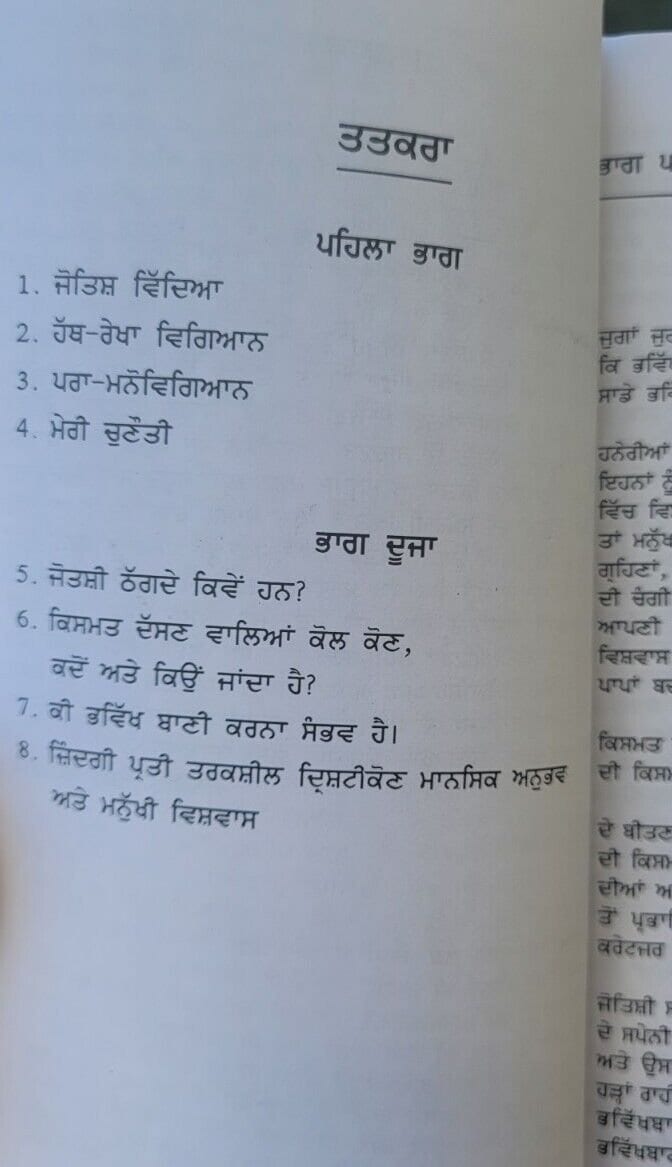 ਤਤਕਰਾ
ਪਹਿਲਾ ਭਾਗ
1. ਜੋਤਿਸ਼ ਵਿੱਦਿਆ
2. ਹੱਥ-ਰੇਖਾ ਵਿਗਿਆਨ
3. ਪਰਾ-ਮਨੋਵਿਗਿਆਨ
4. ਮੇਰੀ ਚੁਣੌਤੀ
ਭਾਗ ਦੂਜਾ
5. ਜੋਤਸ਼ੀ ਠੱਗਦੇ ਕਿਵੇਂ ਹਨ?
6. ਕਿਸਮਤ ਦੱਸਣ ਵਾਲਿਆਂ ਕੋਲ ਕੋਣ,
ਕਦੋਂ ਅਤੇ ਕਿਉਂ ਜਾਂਦਾ ਹੈ?
7. ਕੀ ਭਵਿੱਖ ਬਾਣੀ ਕਰਨਾ ਸੰਭਵ ਹੈ।
8. ਜ਼ਿੰਦਗੀ ਪ੍ਰਤੀ ਤਰਕਸ਼ੀਲ ਦ੍ਰਿਸ਼ਟੀਕੋਣ ਮਾਨਸਿਕ ਅਨੁਭਵ
ਅਤੇ ਮਨੁੱਖੀ ਵਿਸ਼ਵਾਸ
ਭਾਗ
ਜੁਗਾਂ
ਕਿ
ਸਾਡੇ
ਹਨੇਰੀਆਂ
ਇਹਨਾਂ ਨੂੰ
ਵਿੱਚ
ਤਾਂ
ਗ੍ਰਹਿਣਾਂ,
ਦੀ ਚੰਗੀ
ਆਪਣੀ
ਵਿਸ਼ਵਾਸ
ਪਾਪਾਂ
ਕਿਸਮਤ
ਦੀ
ਦੇ
ਦੀ
ਦੀਆਂ
ਤੋਂ
ਕਰੇਟਜਰ
ਜੋਤਿਸ਼ੀ
ਦੇ ਸਪੇਨੀ
ਅਤੇ ਉਸ
ਹੜ੍ਹਾਂ ਰਾਹੀਂ